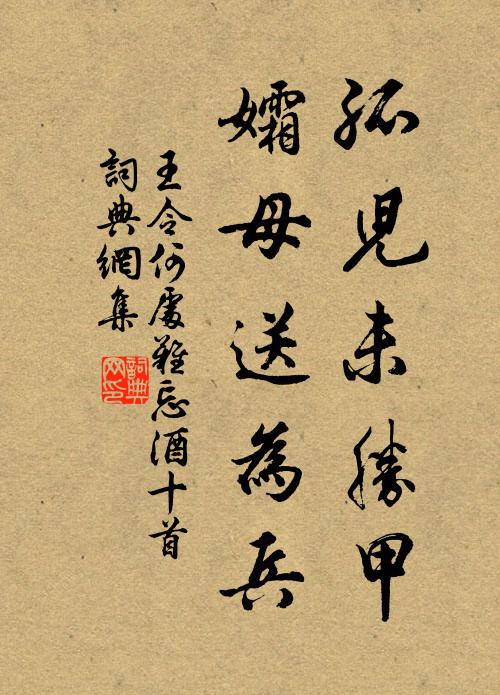 孤兒未勝甲
孀母送為兵
王令何處難忘酒十首
詞典網集
詞典網印